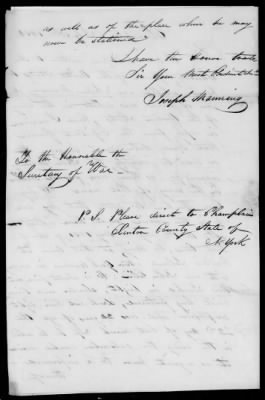 as well as of the place where he may
now be stationed
I have the Honor to be
Sir Your Most Obedient
Joseph Manning
To the Honorable the
Secretary of War
P.S. Please direct to Champlain
Clinton County State of
N York